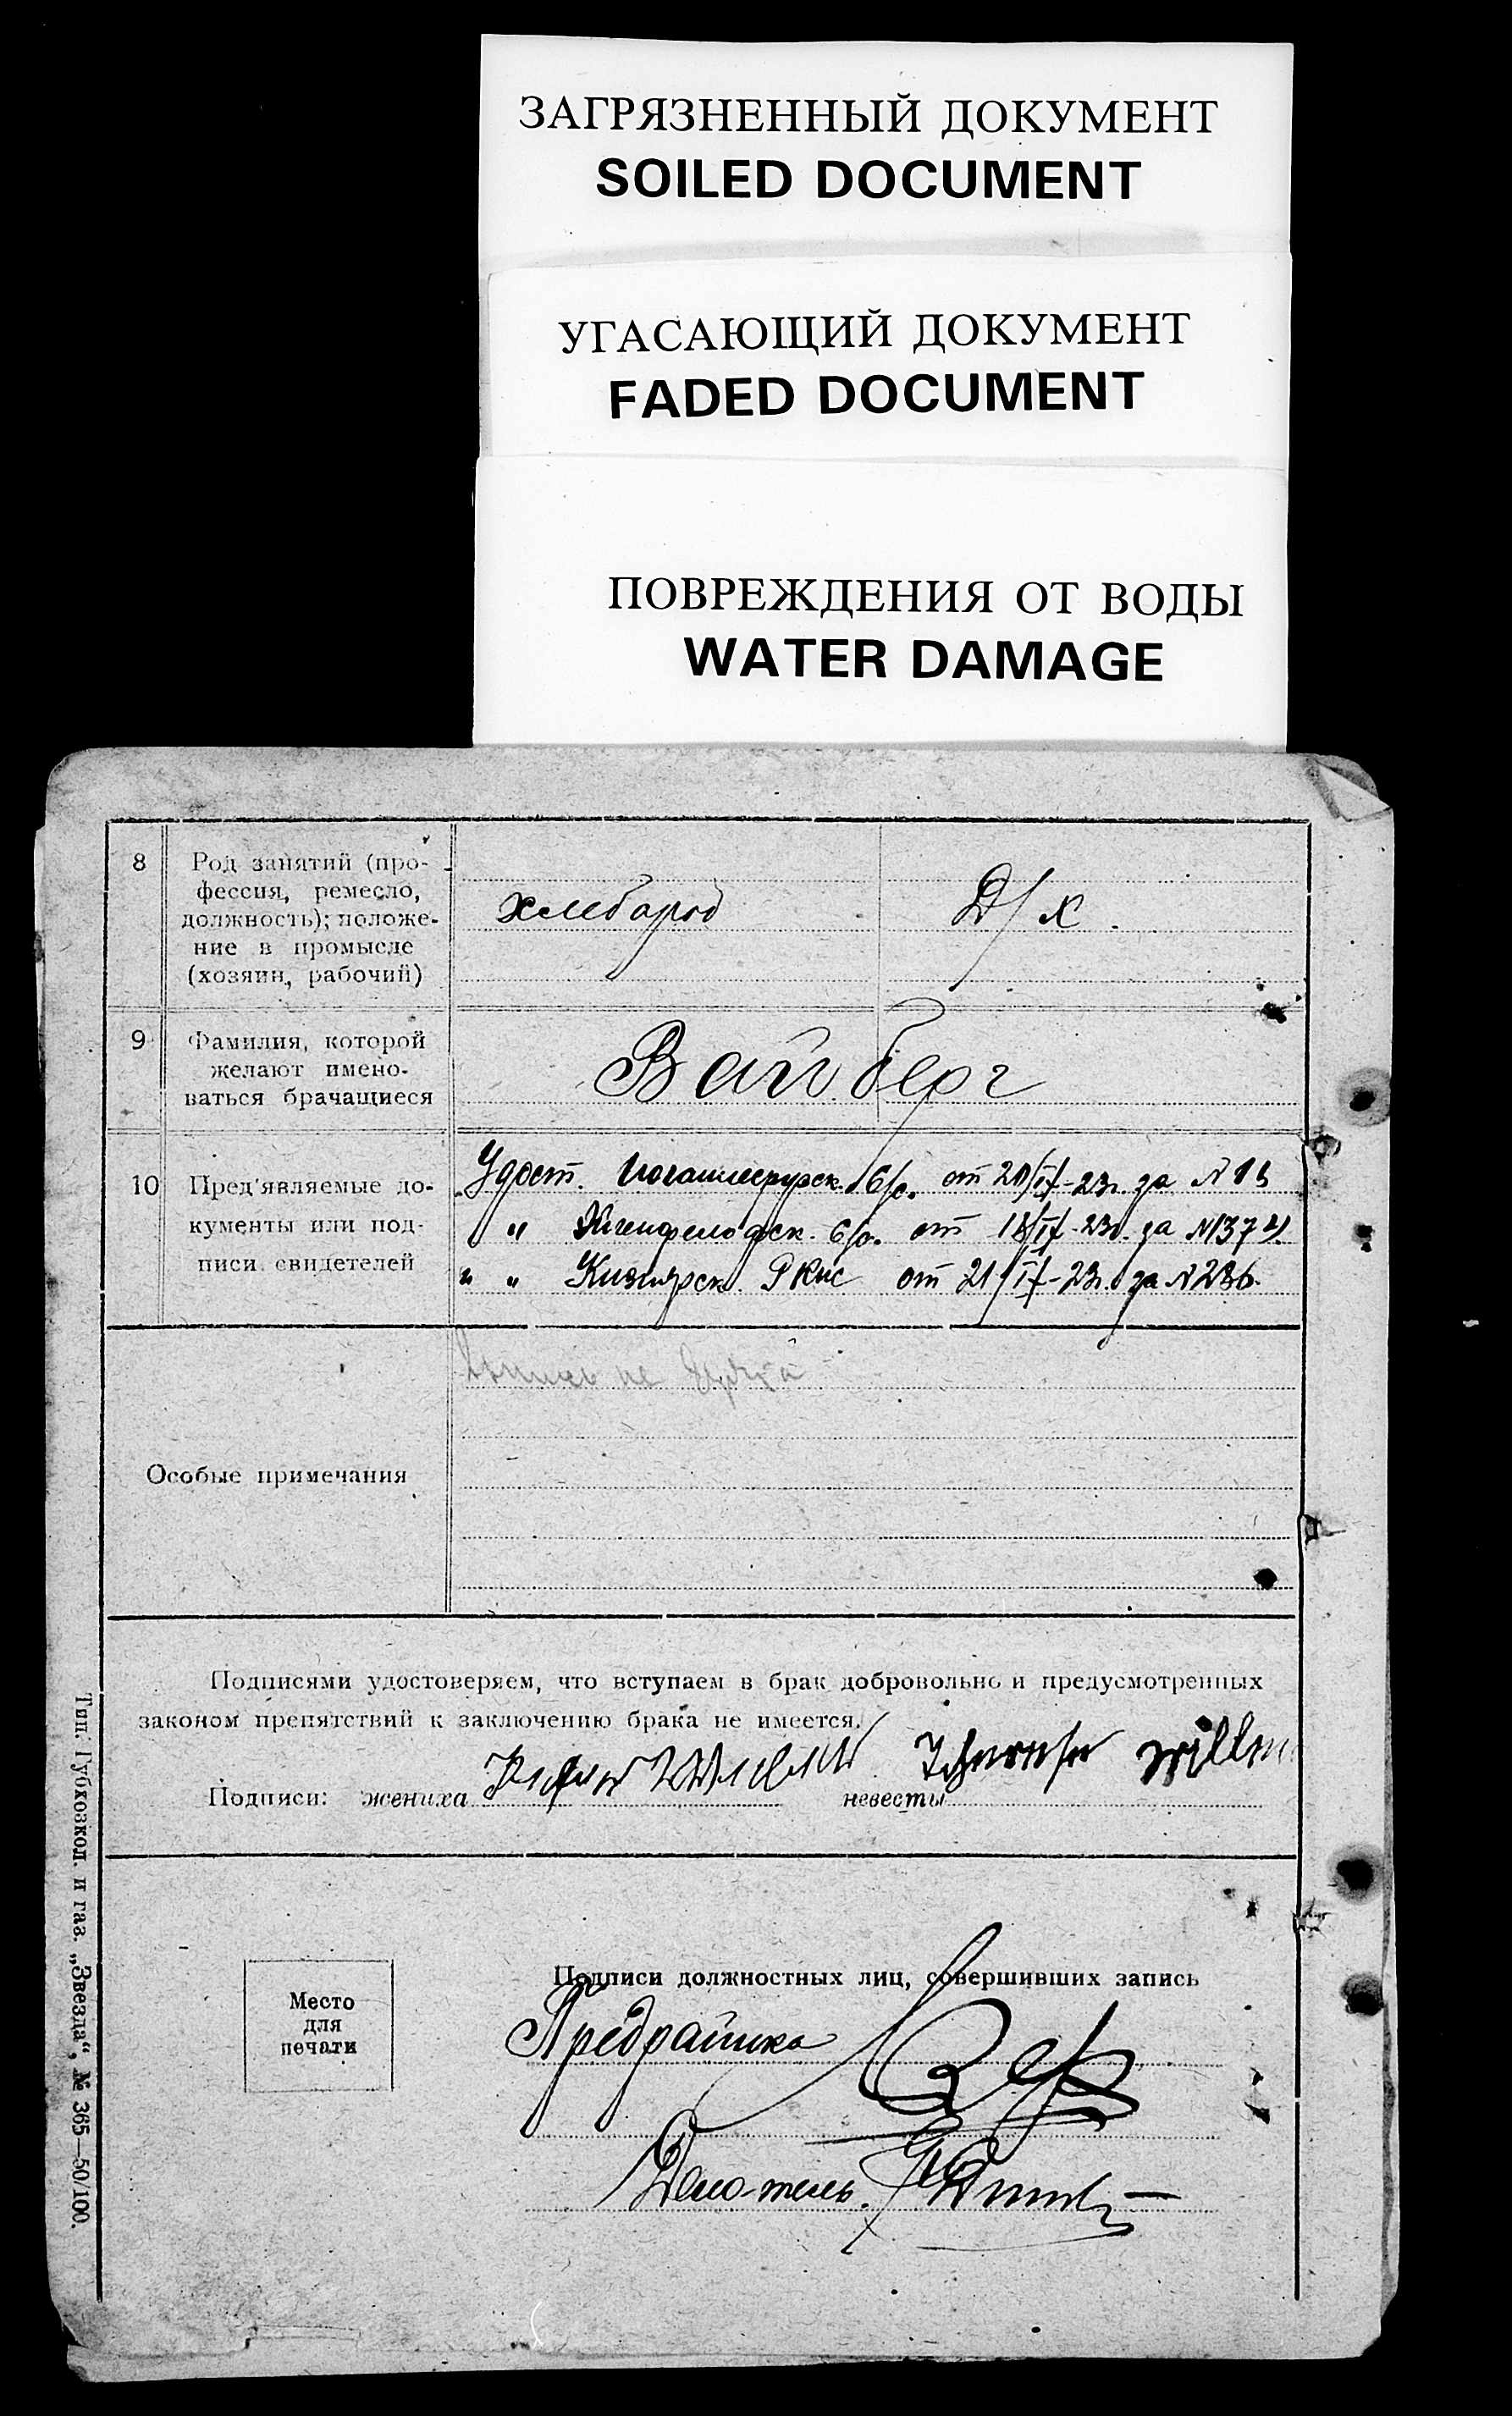 ЗАГРЯЗНЕННЫЙ ДОКУМЕНТ
SOILED DOCUMENT
УГАСАЮЩИЙ ДОКУМЕНТ
FADED DOCUMENT
ПОВРЕЖДЕНИЯ ОТ ВОДЫ
WATER DAMAGE
8
Род занятий (про-
фессия, ремесло,
должность); положе-
ние в промысле
(хозяин, рабочий)
хлебороб
Д/х.
9
Фамилия, которой
желают имено-
ваться брачащиеся
Вайнберг
10
Пред'являемые до-
кументы или под-
писи свидетелей
Удост. с/с. от 20/IX-23г. за №
" с/с. от 18/IX-23г. за №
" " РКИС от 21/IX-23г. за № 236.
Особые примечания
не
Подписями удостоверяем, что вступаем в брак добровольно и предусмотренных
законом препятствий к заключению брака не имеется.
Подписи: жениха
невесты
Место
для
печати
Подписи должностных лиц, совершивших запись
Предрайика
Дело-тель.
Тип. Губкозкол. и газ. „Звезда“, № 365—50/100.